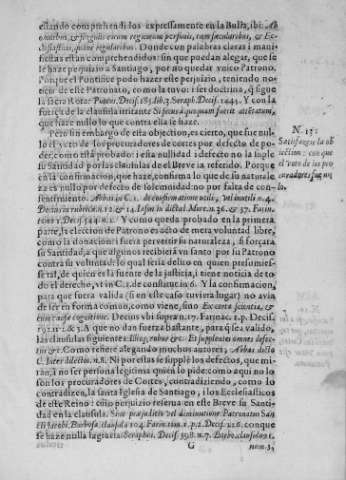 estando comprehendidos expressamente en la Bulla, ibi: Ac
omnibus, & singulis eorum regnorum personis, tam sæcularibus, & Ec-
clesiasticis, quàm regularibus. Donde con palabras claras i mani-
fiestas estan comprehendidos: sin que puedan alegar, que se
le haze perjuizio a Santiago, por no quedar vnico Patrono.
Porque el Pontifice pudo hazer este perjuizio, teniendo no ti-
cia de este Patronato, como la tuvo: i ser doctrina, q̃ sigue
la sacra Rota Decis. 285. lib. 3. Seraph. Decis. 1445. Y con la
fuerça de la clausula irritante Si secus à quoquam fuerit attentatum,
que haze nullo lo que contra ella se haze.
Pero sin embargo de esta objection, es cierto, que fue nul-
lo el voto de los procuradores de cortes por defecto de po-
der, como està probado: i esta nullidad i defecto no la suple
su Santidad por las clausulas de el Breve ia referido. Porque en
la confirmacion, que haze, confirma lo que de su naturale
za es nullo por defecto de solemnidad: no por falta de con-
sentimiento. Abbas in C. 1. de confirmatione utili, vel inutili n. 4.
Decius in rubrica n. 12. & 14. Iason in dicta l. More. n. 36. & 37. Farin.
tom. 1. Decis. 544. n. 1. Y como queda probado en la primera
parte, la eleccion de Patrono es acto de mera voluntad libre,
como la donacion: i fuera pervertir su naturaleza, si forçara
su Santidad, a que algunos recibiera vn santo por su Patrono
contra su voluntad: lo qual seria delito en quien presumies-
se tal, de quien es la fuente de la justicia, i tiene noticia de to
do el derecho, vt in C. 1. de constitut. in 6. Y la confirmacion,
para que fuera valida (si en este caso tuviera lugar) no avia
de ser en forma comun, como viene, sino Ex certa scientia, &
cum causæ cognitione. Decius vbi supra n. 17. Farinac. 1. p. Decis.
192. n. 2. & 3. A que no dan fuerza bastante, para q̃ sea valido,
las clausulas siguientes Illisq; robur &c. Et supplentes omnes defec-
tus &c. Como refiere alegando muchos autores, Abbas dicto
C. Inter dilectos n. 8. Ni por ellas se supplẽ los defectos, que mi-
ran, a no ser persona legitima quien lo pide: como aqui no lo
son los procuradores de Cortes, contradiziendo, como lo
contradizen, la santa Iglesia de Santiago, i los Ecclesiasticos
de este Reino: cuio perjuizio reserva en este Breve su Santi-
dad en la clausula. Sine præjuditio vel diminutione Patronatus San
cti Iacobi. Barbosa clausula 104. Farin. tom. 1. p. 2. Decis. 226. conque
se haze nulla la gratia. Seraphin. Decis. 398. n. 7. Barbo. clausula 10.
G
num. 3.
N. 15:
Satisfaçese la ob
jection: con que
el Voto de los pro
curadores fue nu
lo.